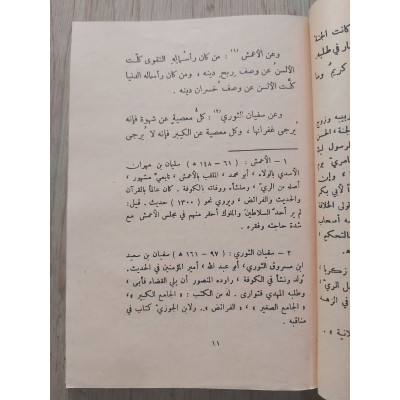 وعن الأعمش (١) : من كان رأسماله التقوى كلّت
الألسن عن وصف ربح دينه ، ومن كان رأسماله الدنيا
كلّت الألسن عن وصف خسران دينه .
وعن سفيان الثوري (٢) : كل معصية عن شهوة فإنه
يُرجى غفرانها ، وكل معصية عن الكبر فإنه لا يُرجى
١ – الأعمش : ( ٦١ – ١٤٨ ه ) سليمان بن مهران
الأسدي بالولاء ، أبو محمد ، الملقب بالأعمش ، تابعيّ مشهور ،
أصله من الريّ ، ومنشأه ووفاته بالكوفة . كان عالماً بالقرآن
والحديث والفرائض ، ويروي نحو ( ١٣٠٠ ) حديث . قيل :
لم ير أحد السلاطين والملوك أحقر منهم في مجلس الأعمش مع
شدة حاجته وفقره .
٢ – سفيان الثوري : ( ٩٧ – ١٦١ ه ) سفيان بن سعيد
ابن مسروق الثوري ، أبو عبد الله ، أمير المؤمنين في الحديث .
وُلد ونشأ في الكوفة ، راوده المنصور أن يلي القضاء فأبى ،
وطلبه المهدي فتوارى . له من الكتب : « الجامع الكبير »
« الجامع الصغير » ، « الفرائض » . ولابن الجوزيّ كتاب في
مناقبه .
١١
كانت الجنة
في طلبه
كريمٌ